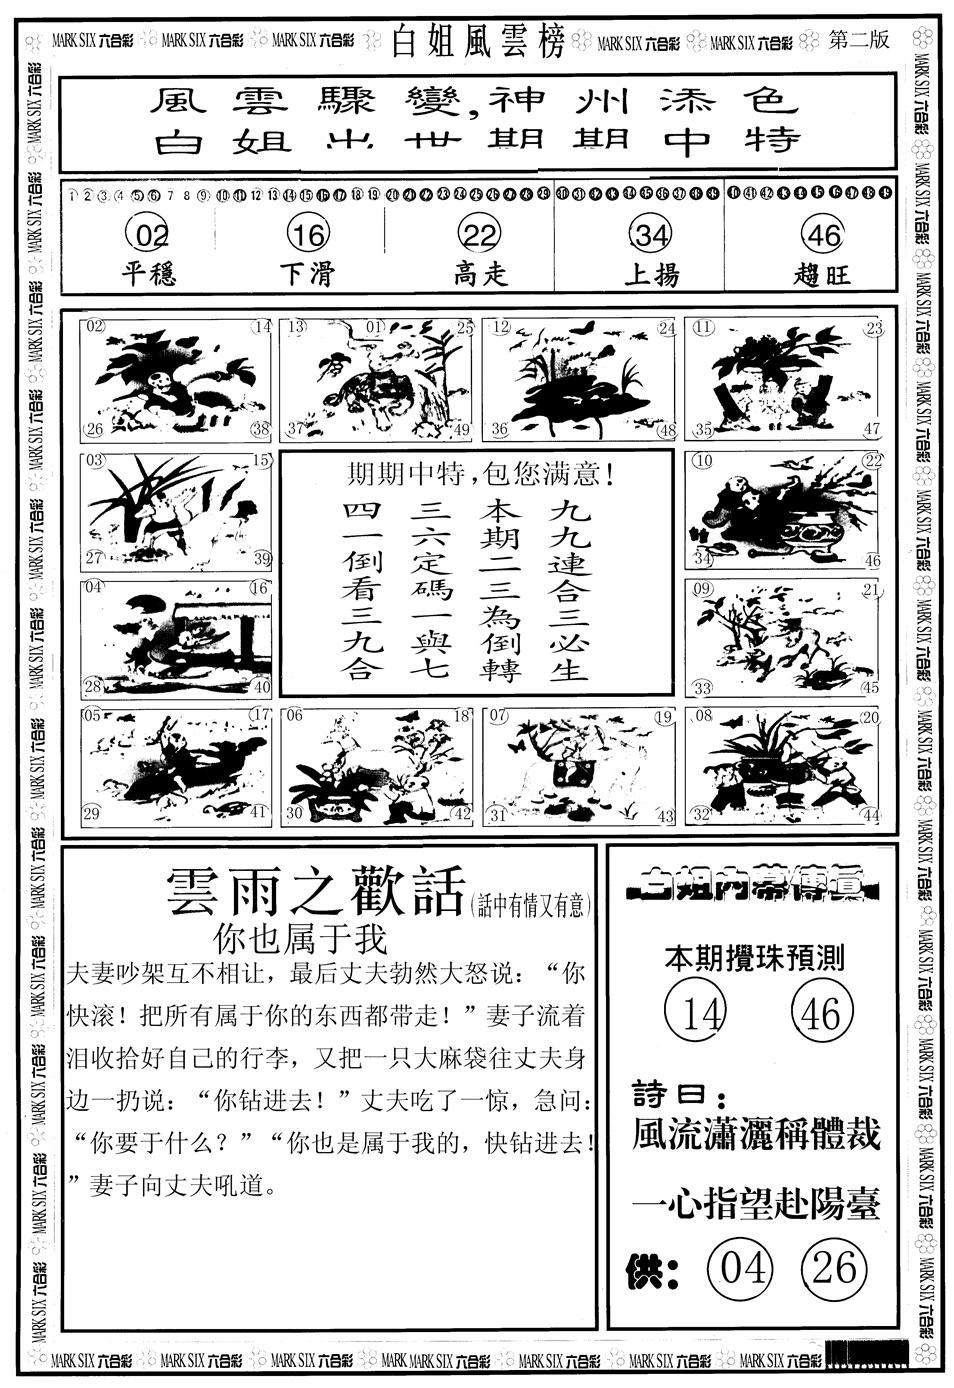 MARK SIX 六合彩 MARK SIX 六合彩 MARK SIX 六合彩 白姐風雲榜 MARK SIX 六合彩 MARK SIX 六合彩 第二版
風雲驟變,神州添色
白姐出世期期中特
1 2 3 4 5 6 7 8 9 10 11 12 13 14 15 16 17 18 19 20 21 22 23 24 25 26 27 28 29 30 31 32 33 34 35 36 37 38 39 40 41 42 43 44 45 46 47 48 49
02 16 22 34 46
平穩 下滑 高走 上揚 趨旺
02 14 13 01 25 12 24 11 23
26 38 37 49 36 48 35 47
03 15
27 39
04 16
28 40
期期中特,包您满意!
九九連合三必生
本期二三為倒轉
三六定碼一與七
四一倒看三九合
10 22
34 46
09 21
33 45
05 17 06 18 07 19 08 20
29 41 30 42 31 43 32 44
雲雨之歡話(話中有情又有意)
你也属于我
夫妻吵架互不相让，最后丈夫勃然大怒说：“你
快滚！把所有属于你的东西都带走！”妻子流着
泪收拾好自己的行李，又把一只大麻袋往丈夫身
边一扔说：“你钻进去！”丈夫吃了一惊，急问：
“你要于什么？”“你也是属于我的，快钻进去！
”妻子向丈夫吼道。
白姐内幕傳真
本期攪珠預測
14 46
詩曰：
風流瀟灑稱體裁
一心指望赴陽臺
供：04 26
MARK SIX 六合彩 MARK SIX 六合彩 MARK SIX 六合彩 MARK MARK SIX 六合彩 MARK SIX 六合彩 MARK SIX 六合彩 MARK SIX 六合彩